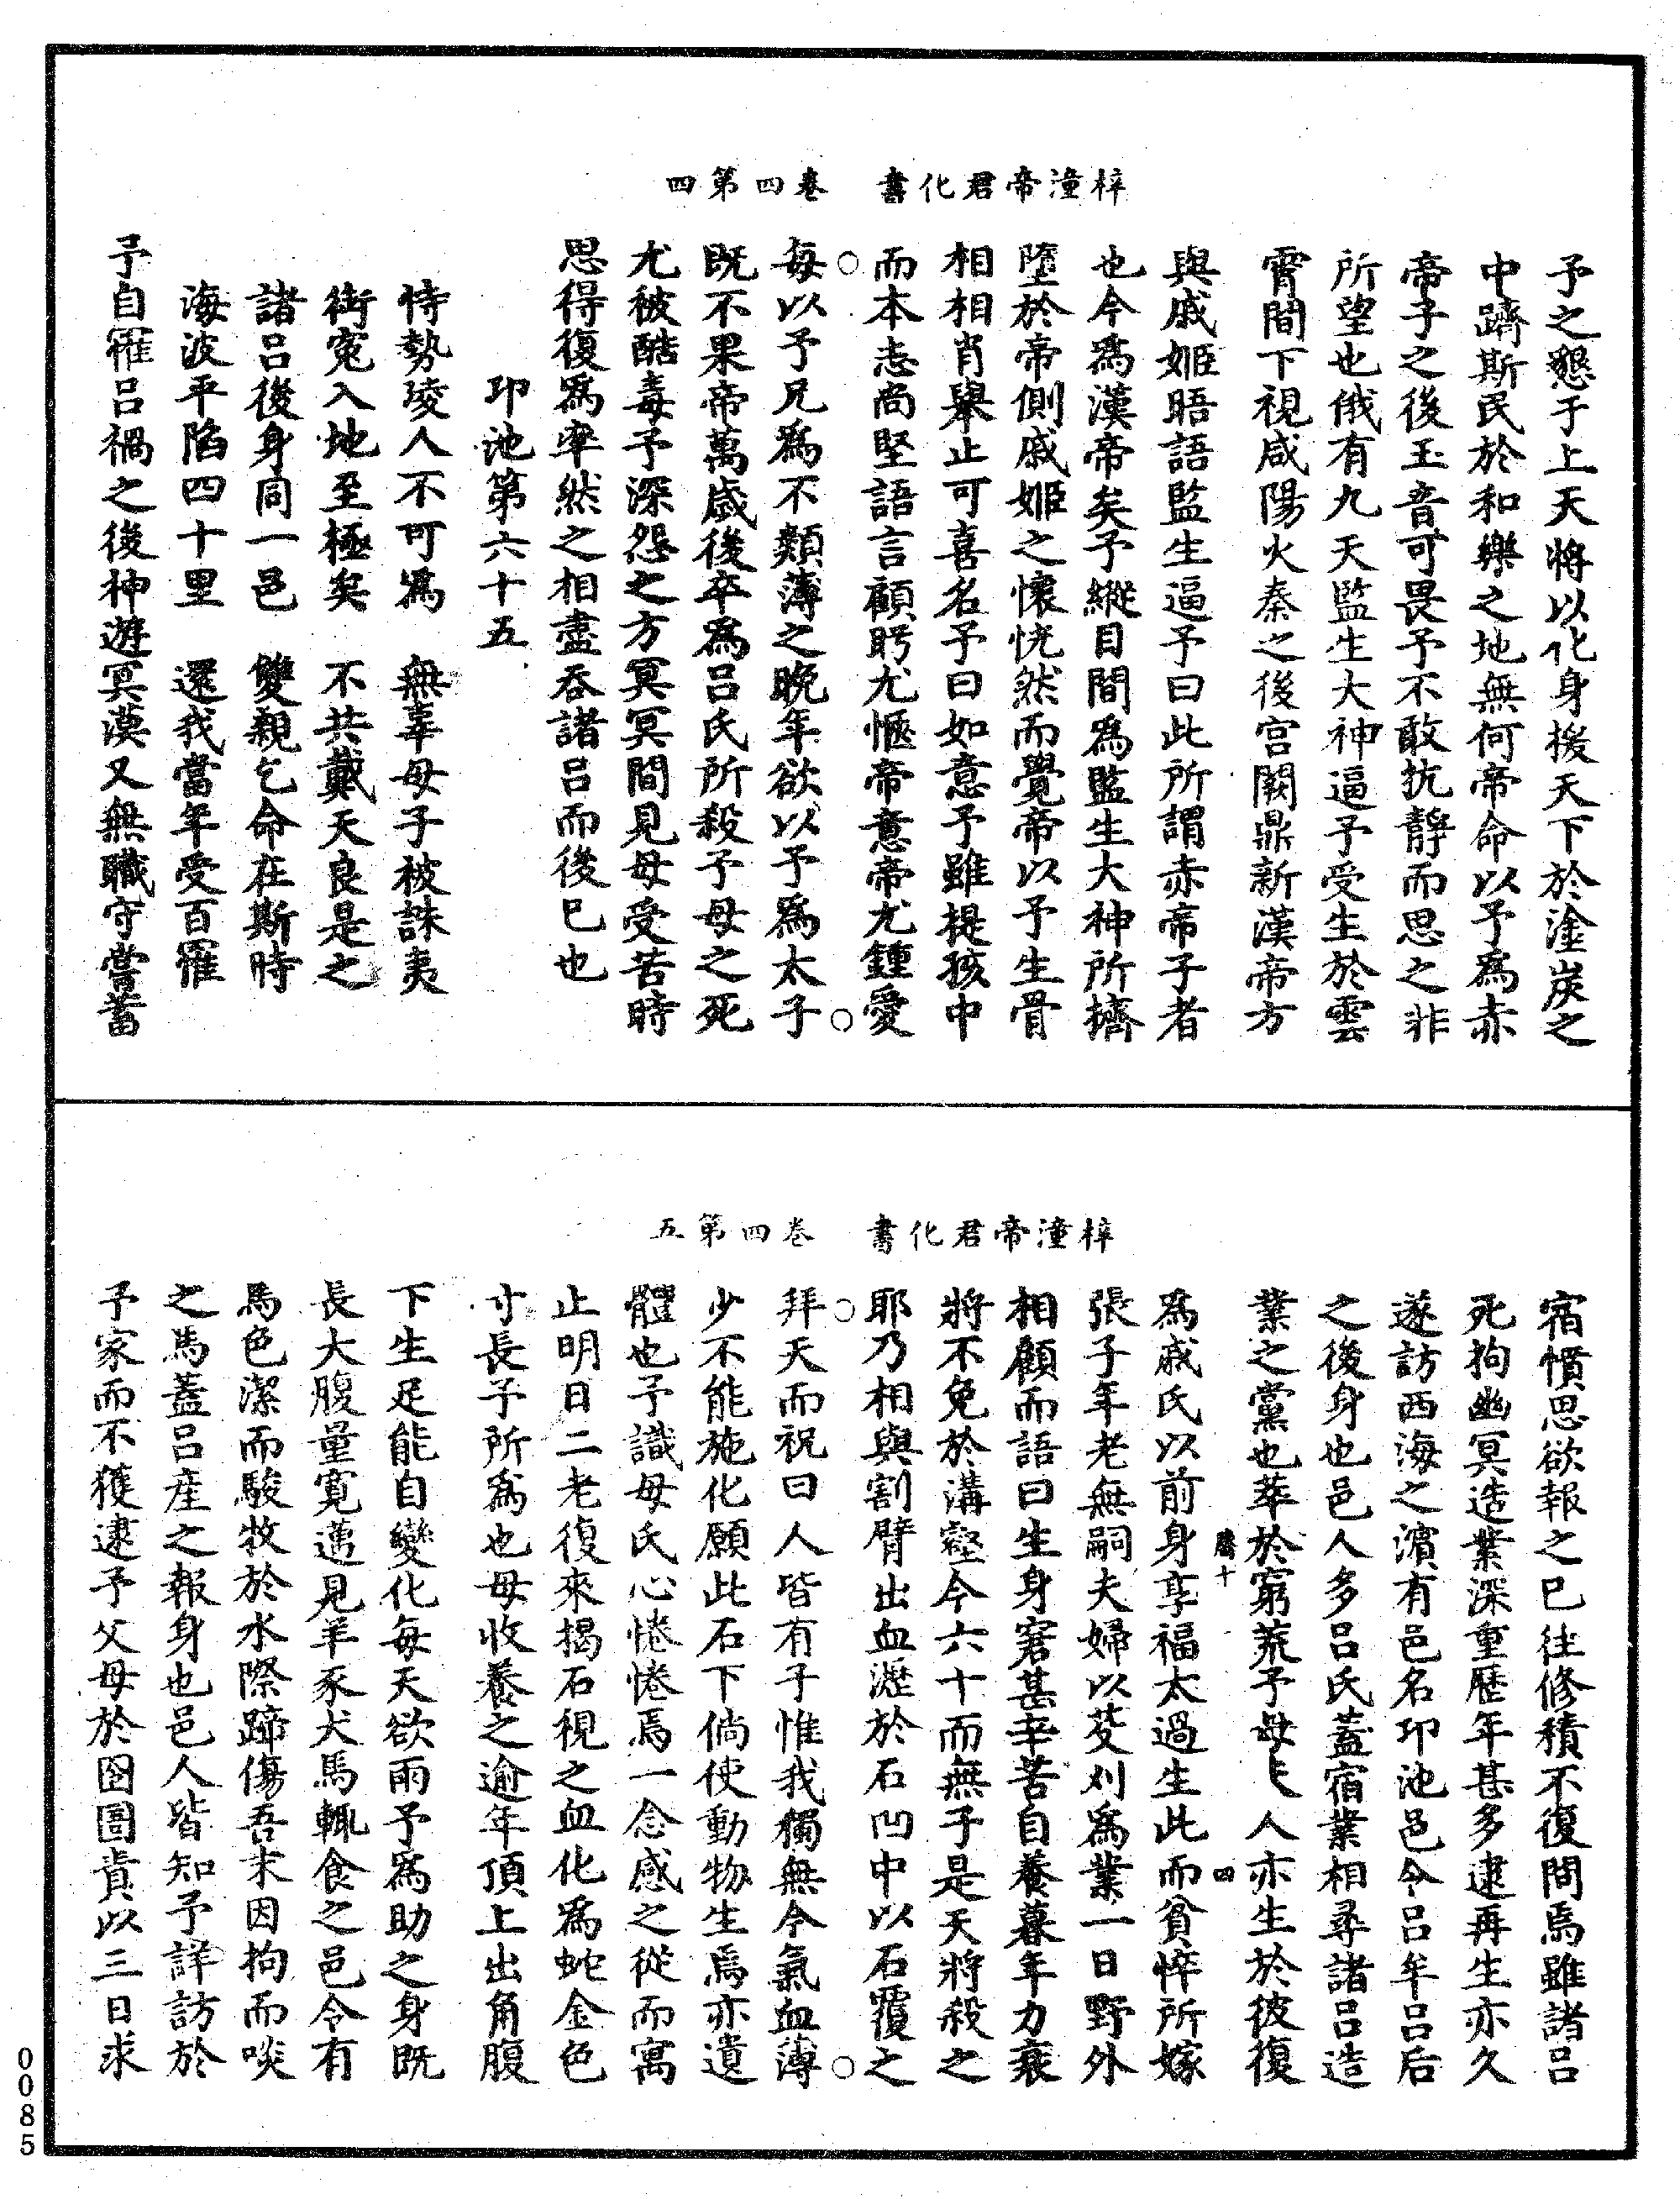 梓潼帝君化書　卷四第四
予之懇于上天將以化身援天下於淦炭之
中躋斯民於和樂之地無何帝命以予為赤
帝子之後玉音可畏予不敢抗靜而思之非
所望也俄有九天監生大神逼予受生於雲
霄間下視咸陽火秦之後宮闕鼎新漢帝方
與戚姬晤語監生逼予曰此所謂赤帝子者
也今為漢帝矣予縱目間為監生大神所擠
墮於帝側戚姬之懷恍然而覺帝以予生骨
相相肖舉止可喜名予曰如意予雖提孩中
而本志尚堅語言顧眄尤愜帝意帝尤鍾愛
每以予兄為不類薄之晚年欲以予為太子
既不果帝萬歲後卒為呂氏所殺予母之死
尤被酷毒予深怨之方冥冥間見母受苦時
思得復為率然之相盡吞諸呂而後已也
印池第六十五
恃勢陵人不可為　無辜母子被誅夷
銜寃入地至極矣　不共戴天良是之
諸呂後身同一邑　雙親乞命在斯時
海波平陷四十里　還我當年受百罹
予自罹呂禍之後神遊冥漠又無職守嘗蓄
梓潼帝君化書　卷四第五
宿憤思欲報之已往修積不復問焉雖諸呂
死拘幽冥造業深重歷年甚多逮再生亦久
遂訪西海之濱有邑名印池邑令呂牟呂后
之後身也邑人多呂氏蓋宿業相尋諸呂造
業之黨也萃於窮荒予母人亦生於彼復
為戚氏以前身享福太過生此而貧悴所嫁
張子年老無嗣夫婦以芟刈為業一日野外
相顧而語曰生身窘甚辛苦自養暮年力衰
將不免於溝壑今六十而無子是天將殺之
耶乃相與割臂出血瀝於石凹中以石覆之
拜天而祝曰人皆有子惟我獨無今氣血薄
少不能施化願此石下倘使動物生焉亦遺
體也予識母氏心惓惓焉一念感之從而寓
止明日二老復來揭石視之血化為蛇金色
寸長予所為也母收養之逾年頂上出角腹
下生足能自變化每天欲雨予為助之身既
長大腹量寬邁見羊豕犬馬輒食之邑令有
馬色潔而駿牧於水際蹄傷吾求因拘而啖
之馬蓋呂產之報身也邑人皆知予詳訪於
予家而不獲逮予父母於囹圄責以三日求
臍十
四
0085